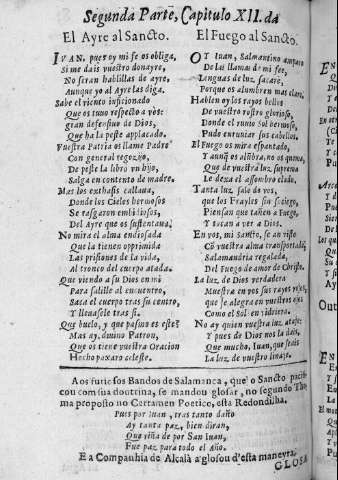 Segunda Parte, Capitulo XII. da
El Ayre al Sancto.
IVAN, pues oy mi fe os obliga,
Si me dais vuestro donayre,
No seran hablillas de ayre,
Aunque yo al Ayre las diga.
Sabe el viento inficionado
Que os tuvo respecto a vos:
gran defensivo de Dios,
Que ha la peste applacado.
Vuestra Patria os llame Padre
Con general regozijo,
De peste la libro vn hijo,
Salga en contento de madre.
Mas los exthasis callava,
Donde los Cielos hermosos
Se rasgaron embidiosos,
Del Ayre que os sustentava.
No mira el alma endiosada
Que la tienen opprimida
Las prisiones de la vida,
Al tronco del cuerpo atada.
Que viendo a su Dios en mi
Para salille al encuentro,
Saca el cuerpo tras su centro,
Y llevasele tras si.
Que buelo, y que pasmo es este?
Mas ay, divino Patron,
Que os tiene vuestra Oracion
Hecho paxaro celeste.
El Fuego al Sancto.
OY Iuan, Salmantino amparo
De las llamas de mi fee,
Lenguas de luz, sacarè,
Porque os alumbren mas claro.
Hablen oy los rayos bellos
De vuestro rostro glorioso,
Donde el runno Sol hermoso,
Pudo enruviar sus cabellos.
El Fuego os mira espantado,
Y aunq̃ os alũbra, no os quema,
Que de vuestra luz, suprema
Le dexa el assombro elado.
Tanta luz sale de vos,
que los Frayles sin sociego,
Piensan que tañen a Fuego,
Y tocan a ver a Dios.
En vos, mi Santo, se an visto
Cõ vuestra alma transportada,
Salamandria regalada,
Del Fuego de amor de Christo.
La luz de Dios verdadera
Muestra en vos sus rayos rojos,
que se alegra en vuestros ojos
Como el Sol en vidriera.
No ay quien vuestra luz ataje,
Y pues de Dios nos la dais,
Que mucho, Iuan, que seais
La luz de vuestro linaje.
Aos furiosos Bandos de Salamanca, que o Sancto pacificou
com sua doutrina, se mandou glosar, no segundo Thema
proposto no Certamen Poetico, esta Redondilha.
Pues por Iuan, tras tanto daño
Ay tanta paz, bien diran,
Que riña de por San Iuan,
Fue paz para todo el Año.
E a Companhia de Alcalà a glosou d'esta maneyra.
GLOSA